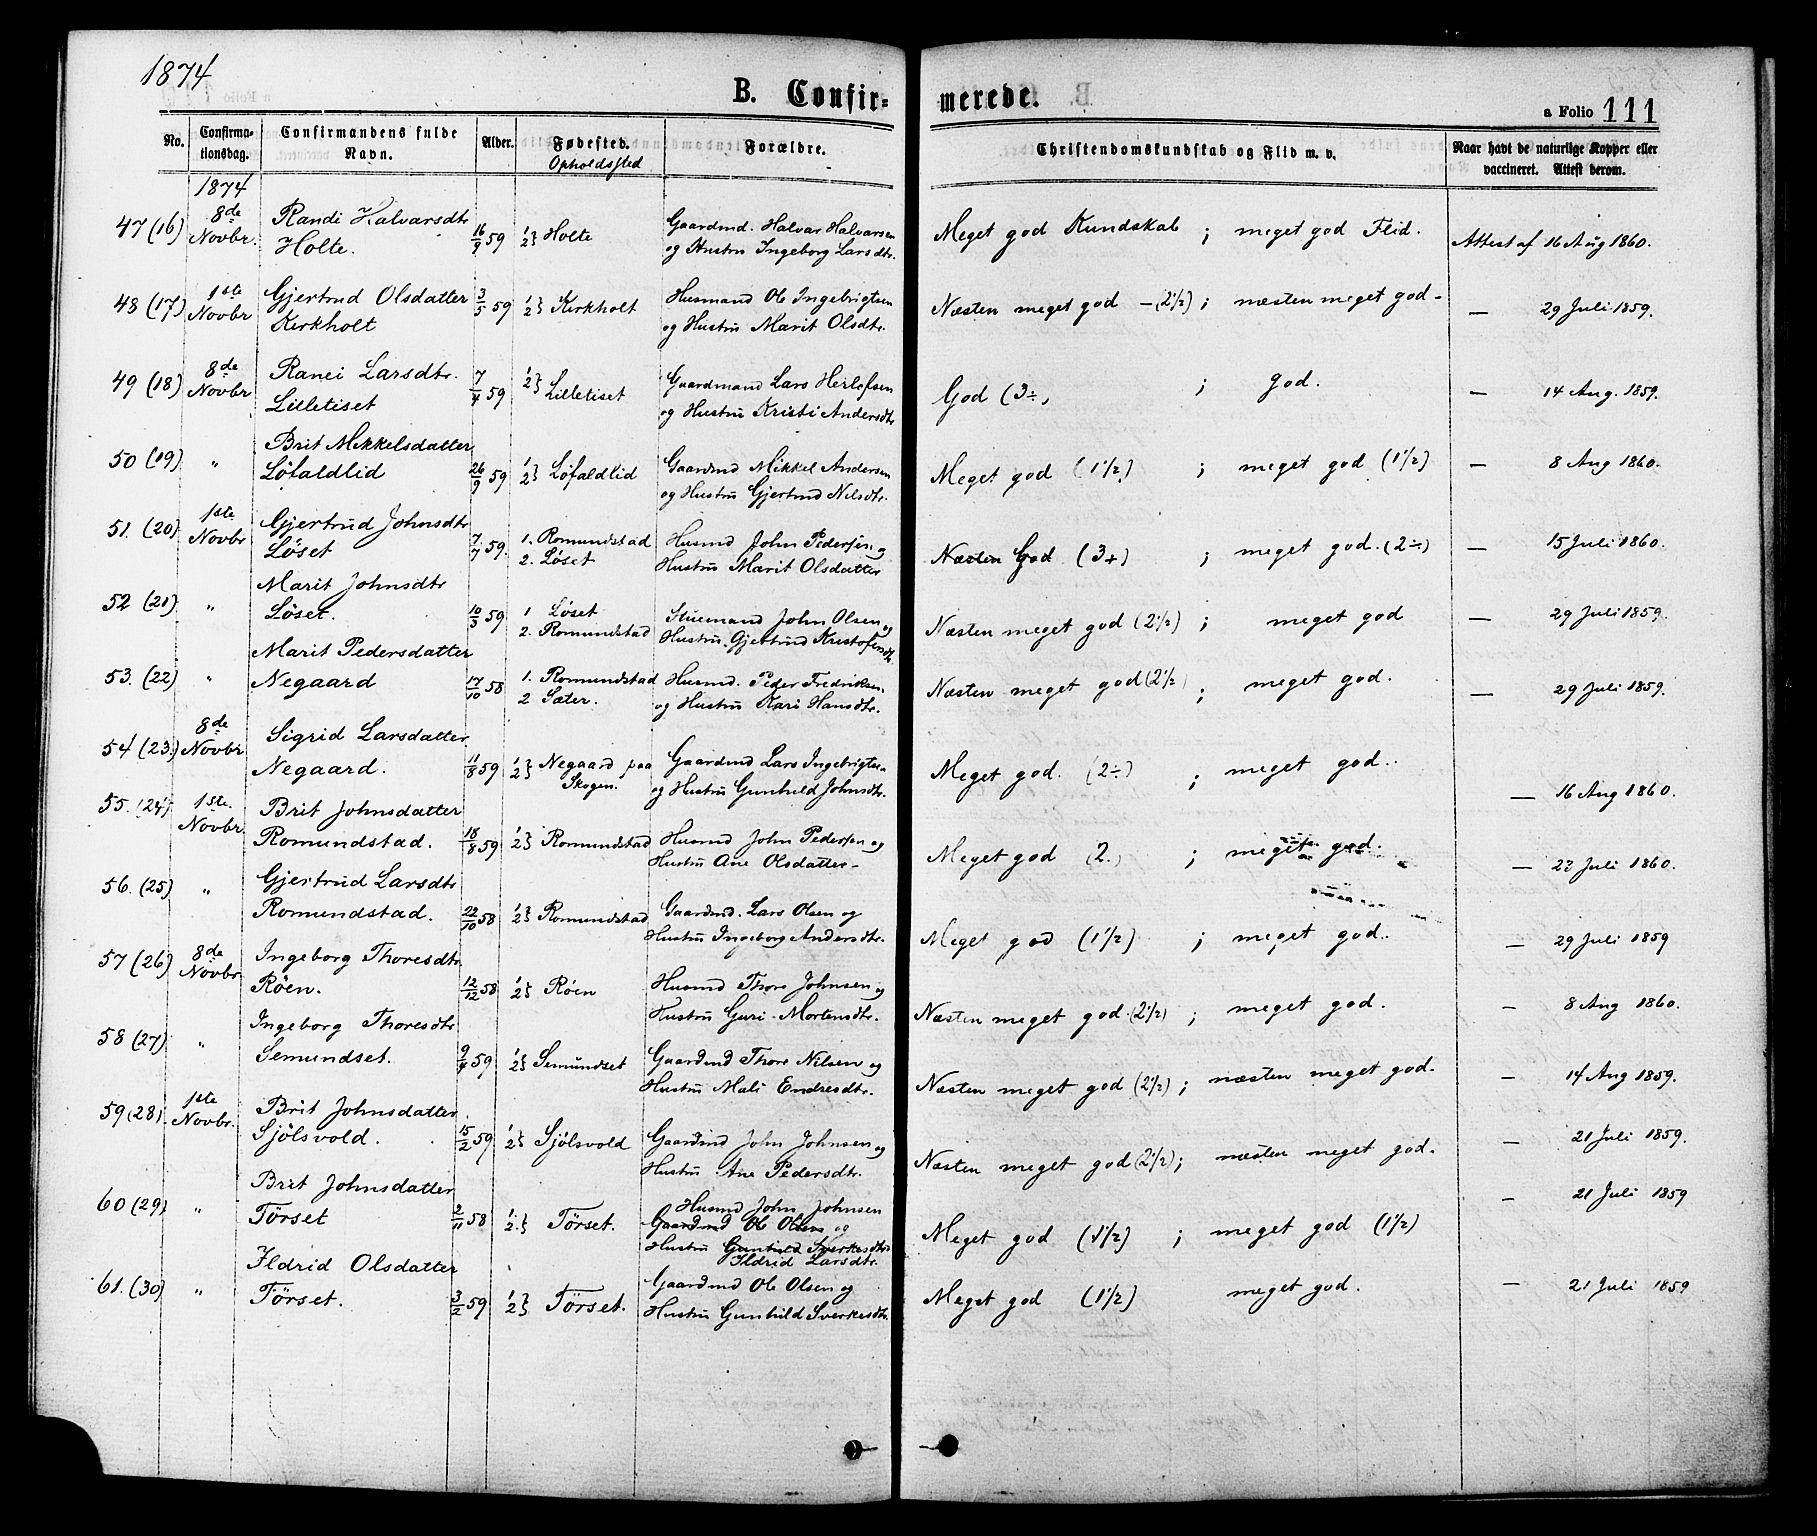 1874
B. Confir-
merede.
a Folio 111
No.
Confirma-
tionsdag.
Confirmandens fulde
Navn.
Alder.
Fødested.
Opholdssted
Forældre.
Christendomskundskab og Flid m. v.
Naar havt de naturlige Kopper eller
vaccineret. Attest derom.
1874
47 (16) 8de Novbr. Randi Halvarsdtr Holte. 16/9 59 1/2} Holte Gaardmd. Halvar Halvarsen og Hustru Ingeborg Larsdtr. Meget god Kundskab ; meget god Flid. Attest af 16 Aug 1860.
48 (17) 1ste Novbr Gjertrud Olsdatter Kirkholt 3/5 59 1/2} Kirkholt Husmand Ole Ingebrigtsen og Hustru Marit Olsdtr. Næsten meget god - (2½) ; næsten meget god - — 29 Juli 1859.
49 (18) 8de Novbr Ranei Larsdtr. Lilletiset 7/4 59 1/2} Lilletiset Gaardmand Lars Herlofsen og Hustru Kristi Andersdtr God (3÷) ; god. — 14 Aug. 1859.
50 (19) " Brit Mikkelsdatter Löfaldlid 26/9 59 1/2} Löfaldlid Gaardmd Mikkel Andersen og Hustru Gjertrud Nilsdtr. Meget god (1½) ; meget god (1½) — 8 Aug 1860.
51. (20) 1ste Novbr Gjertrud Johnsdtr Löset 7/7 59. 1. Romundstad 2. Löset Husmd John Pedersen og Hustru Marit Olsdatter Næsten God (3+) ; meget god. (2÷) — 15 Juli 1860.
52 (21) " Marit Johnsdtr Löset. 10/3 59 1 Löset 2. Romundstad Stuemand John Olsen og Hustru Gjertrud Kristofersdtr. Næsten meget god (2½) ; meget god — 29 Juli 1859.
53. (22) " Marit Pedersdatter Negaard 17/10 58 1. Romundstad 2 Sæter. Husmd. Peder Fredriksen og Hustru Kari Hansdtr. Næsten meget god (2½ ; meget god. — 29 Juli 1859.
54 (23.) 8de Novbr Sigrid Larsdatter Negaard. 11/8 59 1/2} Negaard paa Skogen. Gaardmd Lars Ingebrigtsen og Hustru Gunhild Johnsdtr. Meget god. (2÷) ; meget god. — 16 Aug 1860.
55. (24) 1ste. Novbr. Brit Johnsdatter Romundstad. 18/8 59 1/2} Romundstad Husmd John Pedersen og Hustru Ane Olsdatter - Meget god (2.) ; meget god. — 23 Juli 1860.
56. (25) " Gjertrud Larsdtr Romundstad. 22/10 58 1/2} Romundstad Gaardmd. Lars Olsen og Hustru Ingeborg Andersdtr. Meget god (1½) ; meget god. — 29 Juli 1859
57 (26) 8de Novbr Ingeborg Thoresdtr. Röen. 12/12 58 1/2} Röen Husmd Thore Johnsen og Hustru Guri Mortensdtr. Næsten meget god (2½) ; meget god. — 8 Aug 1860.
58 (27) " Ingeborg Thoresdtr Semundset. 9/4 59 1/2} Semundset Gaardmd Thore Nilsen og Hustru Mali Endresdtr. Næsten meget god (2½) ; næsten meget god. — 14 Aug 1859.
59 (28). 1ste Novbr. Brit Johnsdatter. Sjölsvold. 15/2 59 1/2} Sjölsvold Gaardmd John Johnsen og Hustru Ane Pedersdtr. Næsten meget god (2½) ; næsten meget god. — 21 Juli 1859.
60 (29) " Brit Johnsdatter Törset 2/11 58 1/2} Törset. Husmd John Johnsen Gaardmd Ole Olsen og Hustru Gunhild Sverkesdtr. Ildrid Larsdtr. Meget god (1½) ; meget god (1½) — 21 Juli 1859
61. (30) " Ildrid Olsdatter Törset. 3/2 59 1/2} Törset. Gaardmd Ole Olsen og Hustru Gunhild Sverkesdtr. Meget god (1½) meget god. — 21 Juli 1859